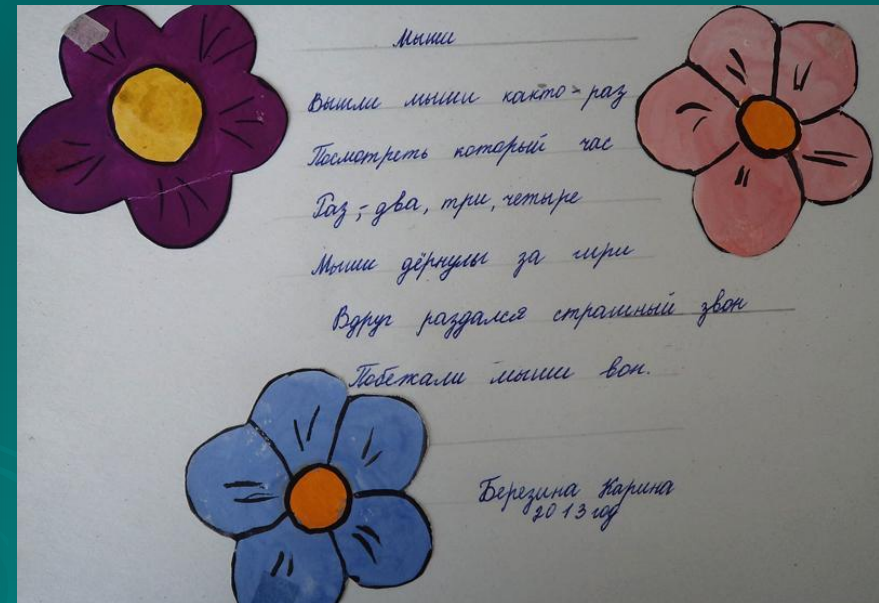 Мыши
Вышли мыши както-раз
Посмотреть который час
Раз,-два, три, четыре
Мыши дёрнулы за гири
Вдруг раздался страшный звон
Побежали мыши вон.
Березина Карина
2013 год